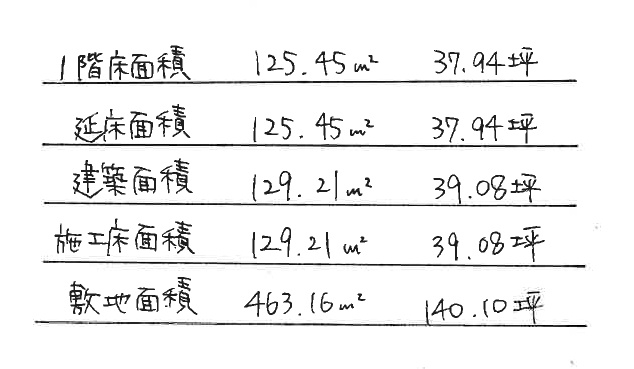 1階床面積 125.45m² 37.94坪
延床面積 125.45m² 37.94坪
建築面積 129.21m² 39.08坪
施工床面積 129.21m² 39.08坪
敷地面積 463.16m² 140.10坪